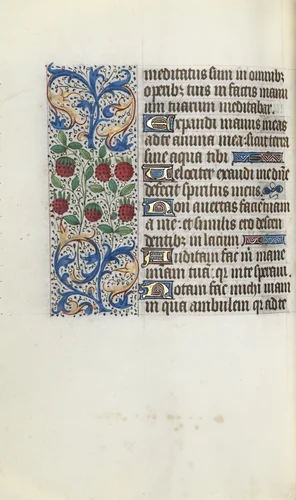 meditatus sum in omnibz
operibz tuis in factis manu
um tuarum meditabar.
Expandi manus meas
ad te anima mea sicut terra
sine aqua tibi
Velociter exaudi me dñe
defecit spiritus meus
Non auertas faciem tuam
a me: et similis ero descen
dentibz in lacum
Auditam fac m̃ mane
miam tuã: qr in te speraui.
Notam fac michi uiam
in qua ambulem qr ad te